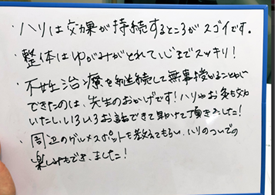 ハリは効果が持続するところがスゴイです。
整体はゆがみがとれて心までスッキリ！
不妊治療を継続して無事授かることが
できたのは、先生のおかげです！ハリやお灸も
いたしいろいろお話できて助けて頂きました！
周辺のグルメスポットを教えてもらい、ハリのついでの
楽しみもできました！